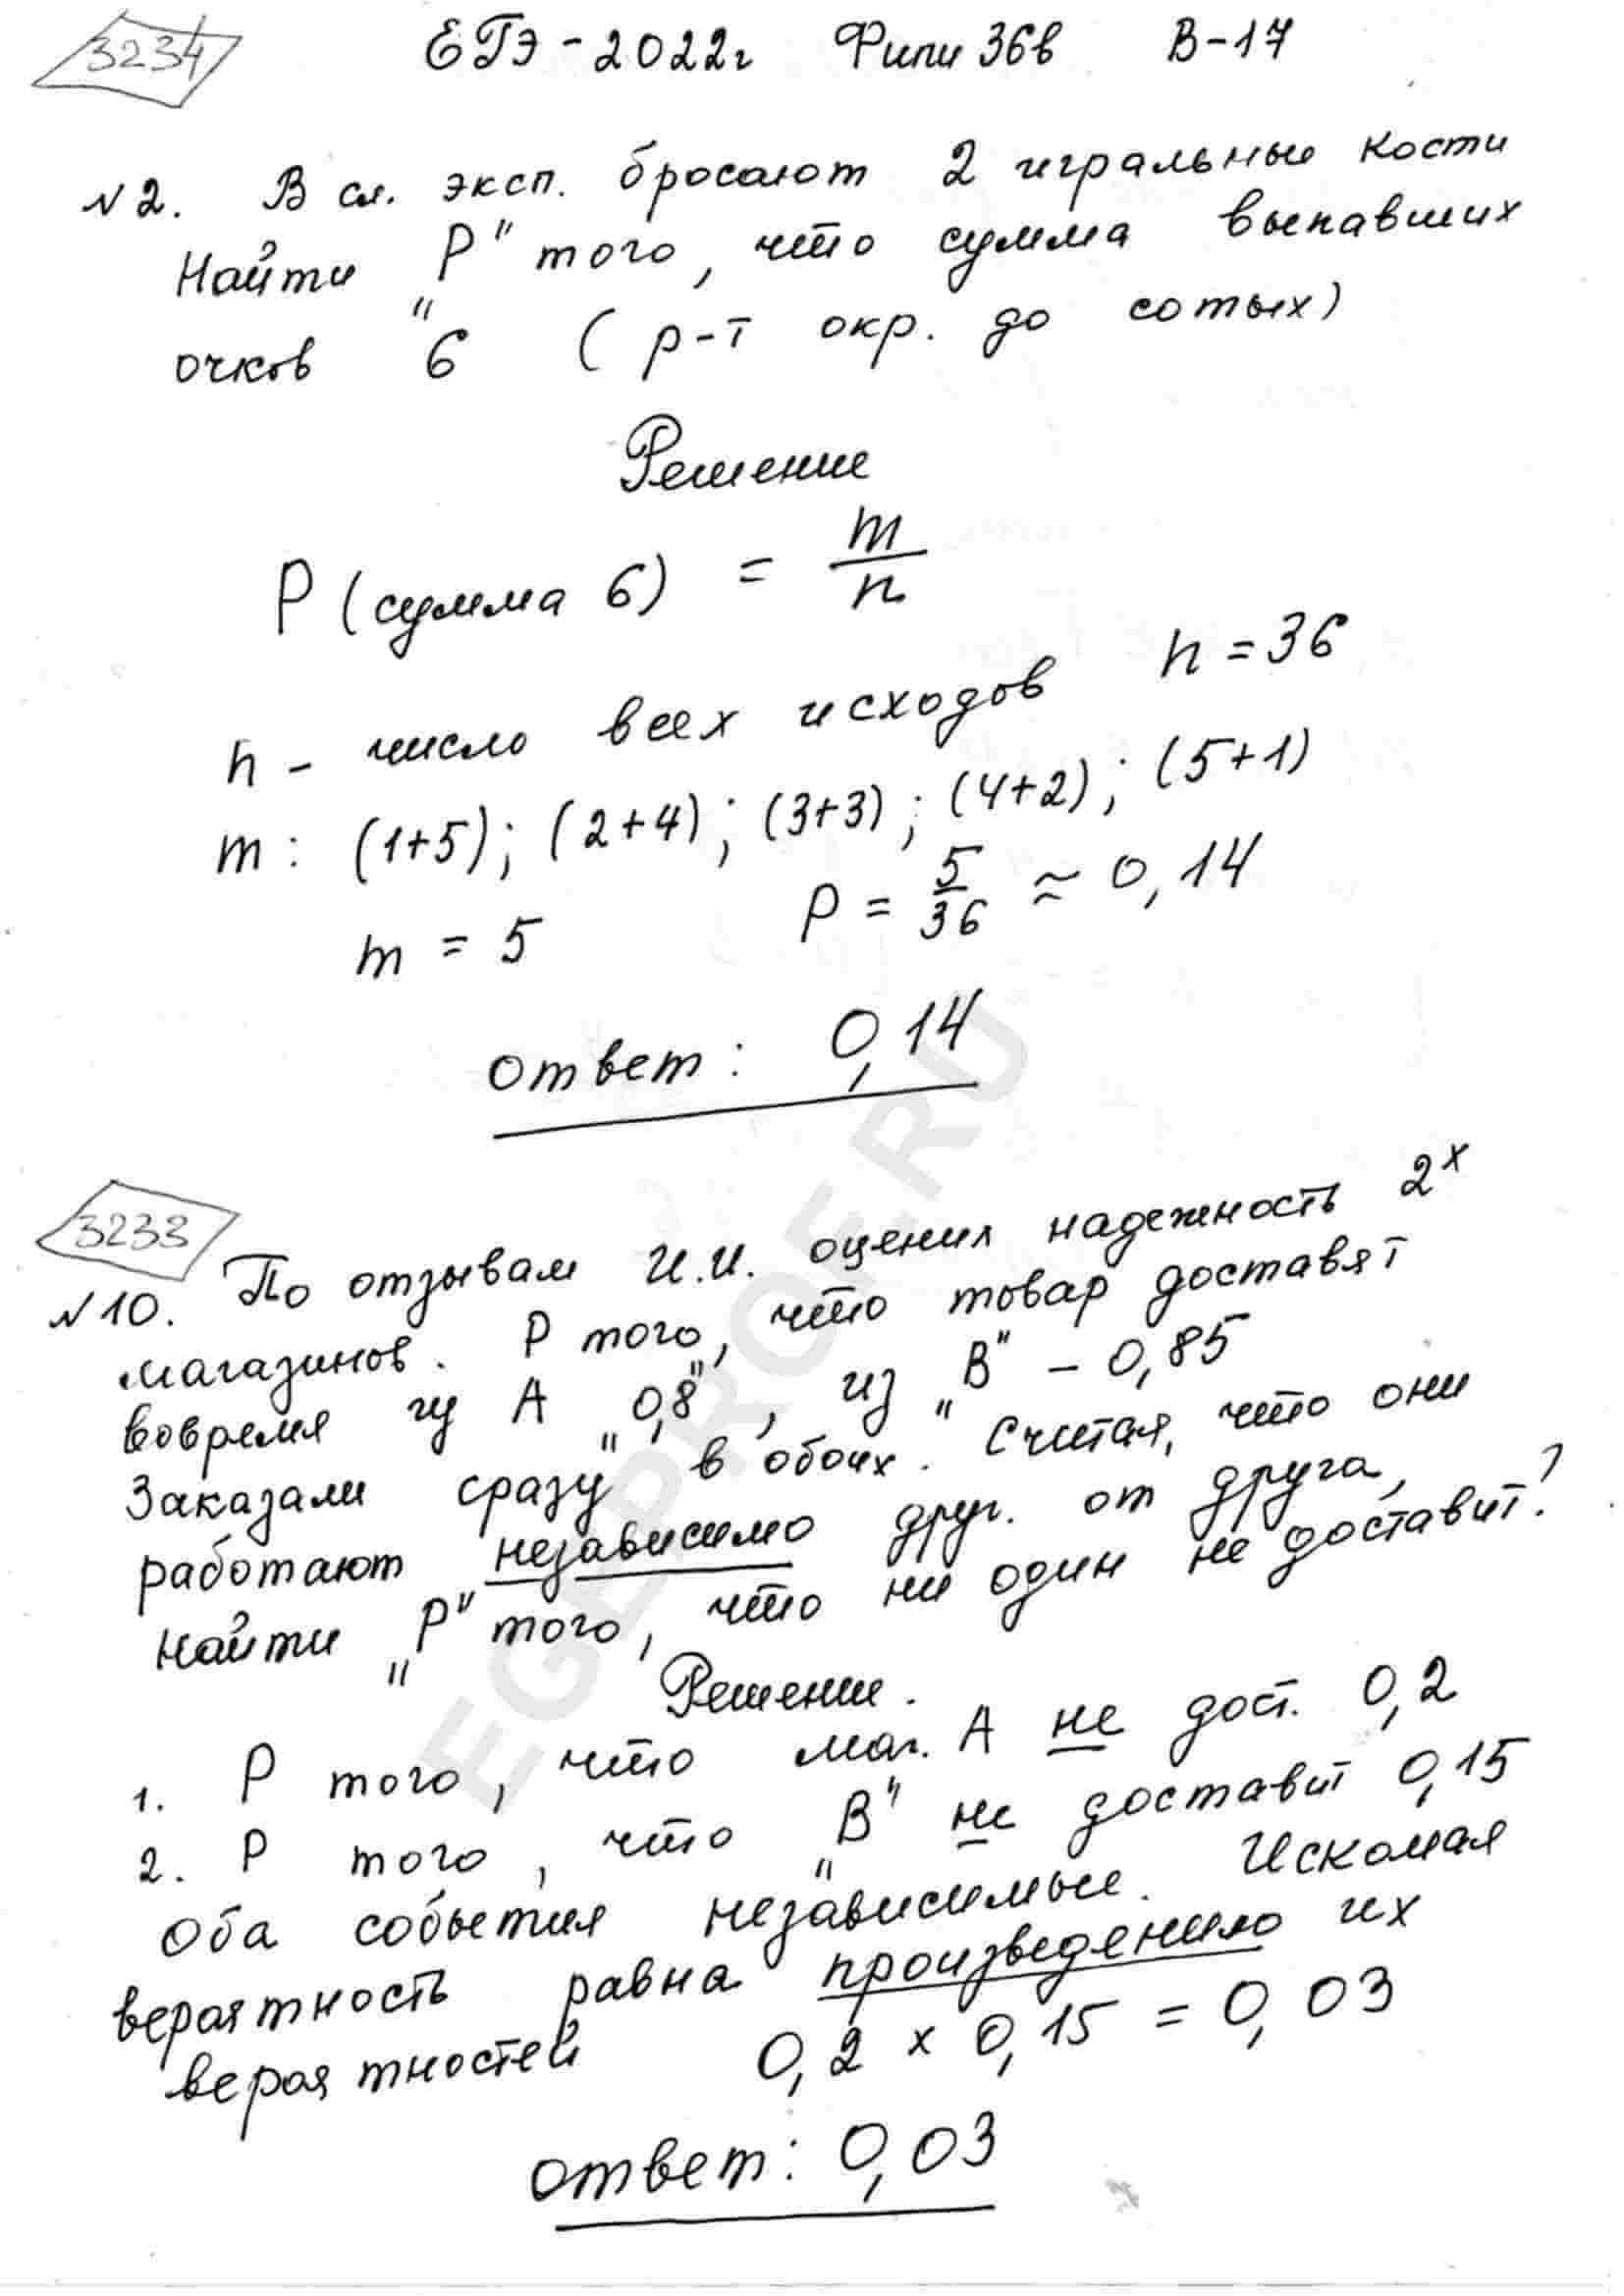 3234
ЕГЭ - 2022г Фипи 36в В-17
№2. В сл. эксп. бросают 2 игральные кости
Найти "Р" того, что сумма выпавших
очков 6 (р-т окр. до сотых)
Решение
P (сумма 6) = m/n
n - число всех исходов n = 36
m: (1+5); (2+4); (3+3); (4+2); (5+1)
m = 5 P = 5/36 ≈ 0,14
ответ: 0,14
EGEPROF.RU
3233
№10. По отзывам И.И. оценил надежность 2х
магазинов. Р того, что товар доставят
вовремя из А "0,8", из "В" - 0,85
Заказали сразу в обоих. Считая, что они
работают независимо друг. от друга,
Найти "Р" того, что ни один не доставит?
Решение.
1. Р того, что маг. А не дост. 0,2
2. Р того, что "В" не доставит 0,15
Оба события независимые. Искомая
вероятность равна произведению их
вероятностей 0,2 х 0,15 = 0,03
ответ: 0,03